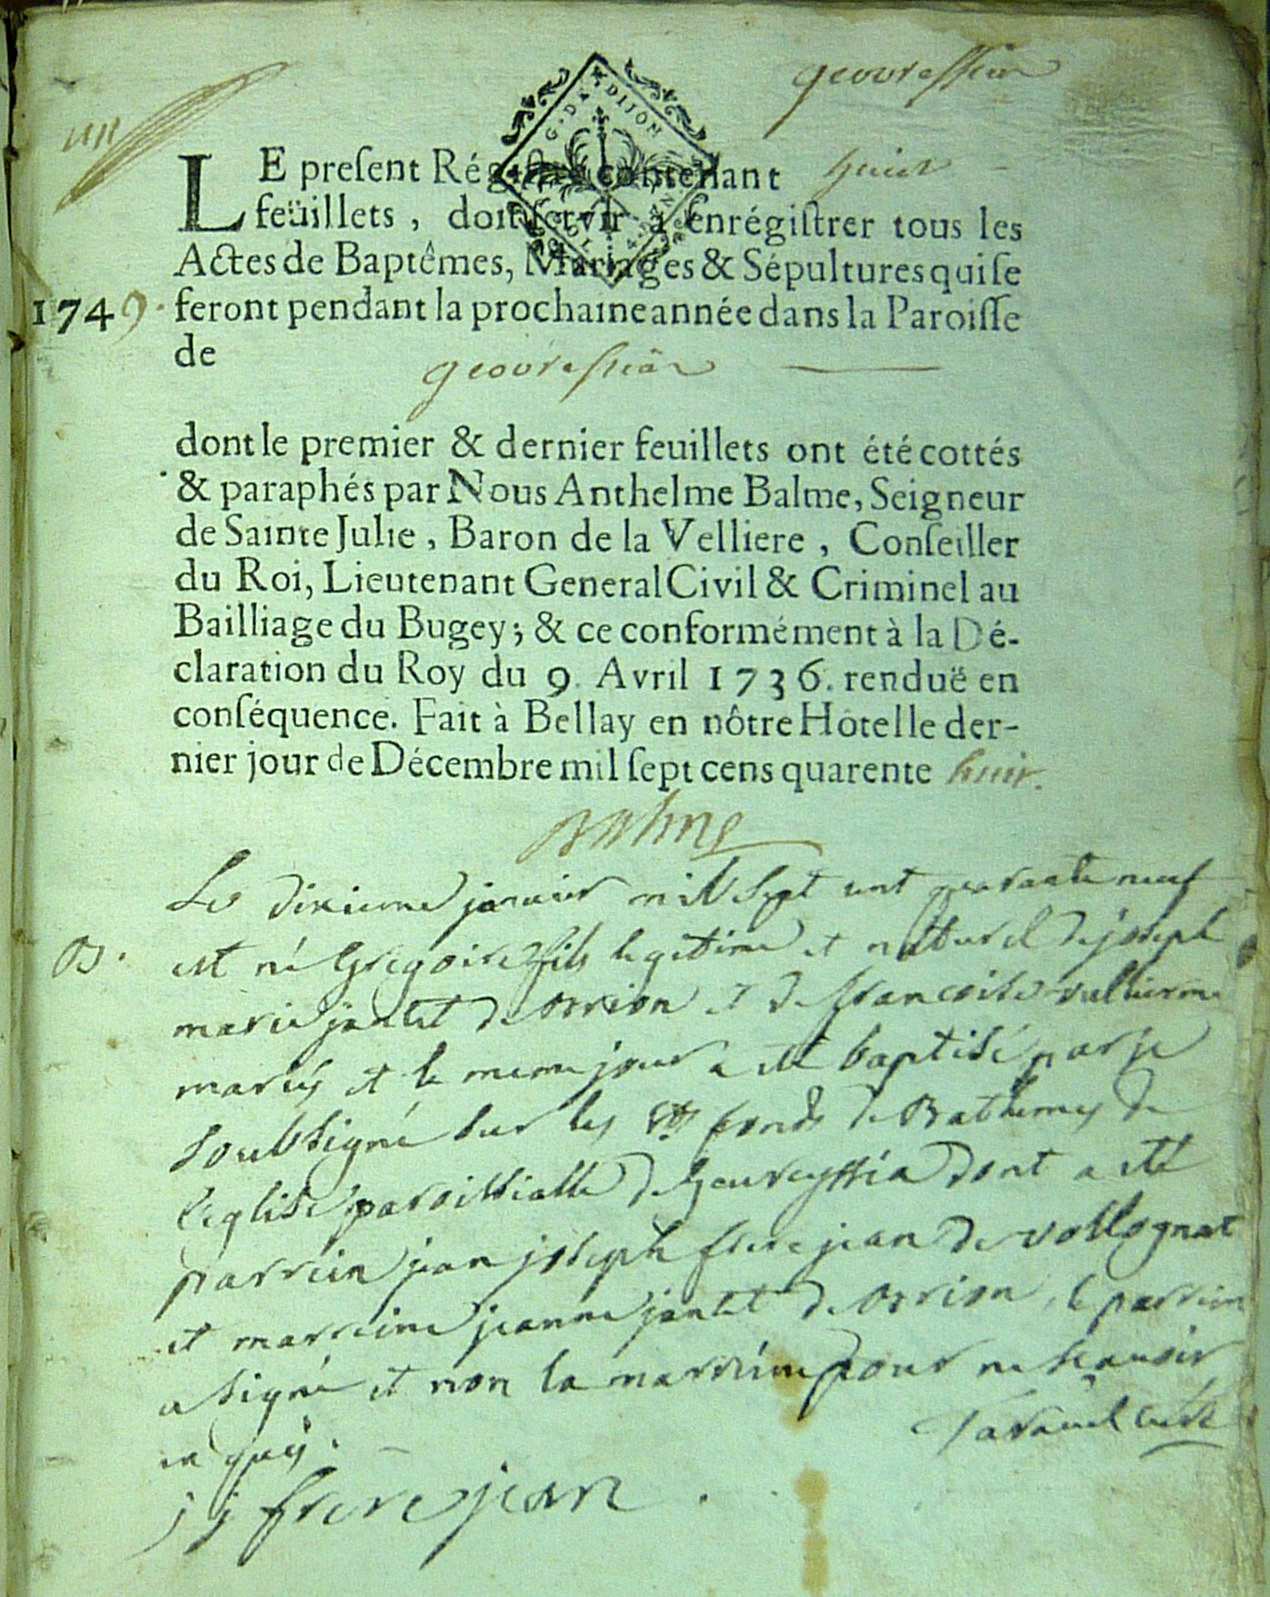 geovressiat
un
G. DE DIJON
LE preſent Régiſtre contenant huict
feüillets, doit ſervir à enrégiſtrer tous les
Actes de Baptêmes, Mariages & Sépultures qui ſe
1749. feront pendant la prochaine année dans la Paroiſſe
de
geovressiat
dont le premier & dernier feuillets ont été cottés
& paraphés par Nous Anthelme Balme, Seigneur
de Sainte Julie, Baron de la Velliere, Conſeiller
du Roi, Lieutenant General Civil & Criminel au
Bailliage du Bugey; & ce conformément à la Dé-
claration du Roy du 9. Avril 1736. renduë en
conſéquence. Fait à Bellay en nôtre Hôtel le der-
nier jour de Décembre mil ſept cens quarente huit.
Balme
Le dixieme janvier mil sept cent quarante neuf
B. est né Gregoire fils legitime et naturel de joseph
marie jantet de orrion et de francoise vullierme
mariés et le meme jour a eté baptisé par je
soubsigné sur les sts fonds de Bathemes de
l'eglise paroissialle de Geureyssia dont a eté
parrein jean joseph frere jean de vollognat
et marreine jeanne jantet de orrion, le parrein
a signé et non la marreine pour ne scauoir
ce
j j frere jean